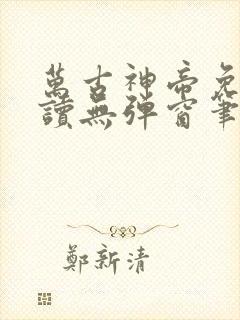 萬古神帝免
讀無彈窗筆
鄭新清